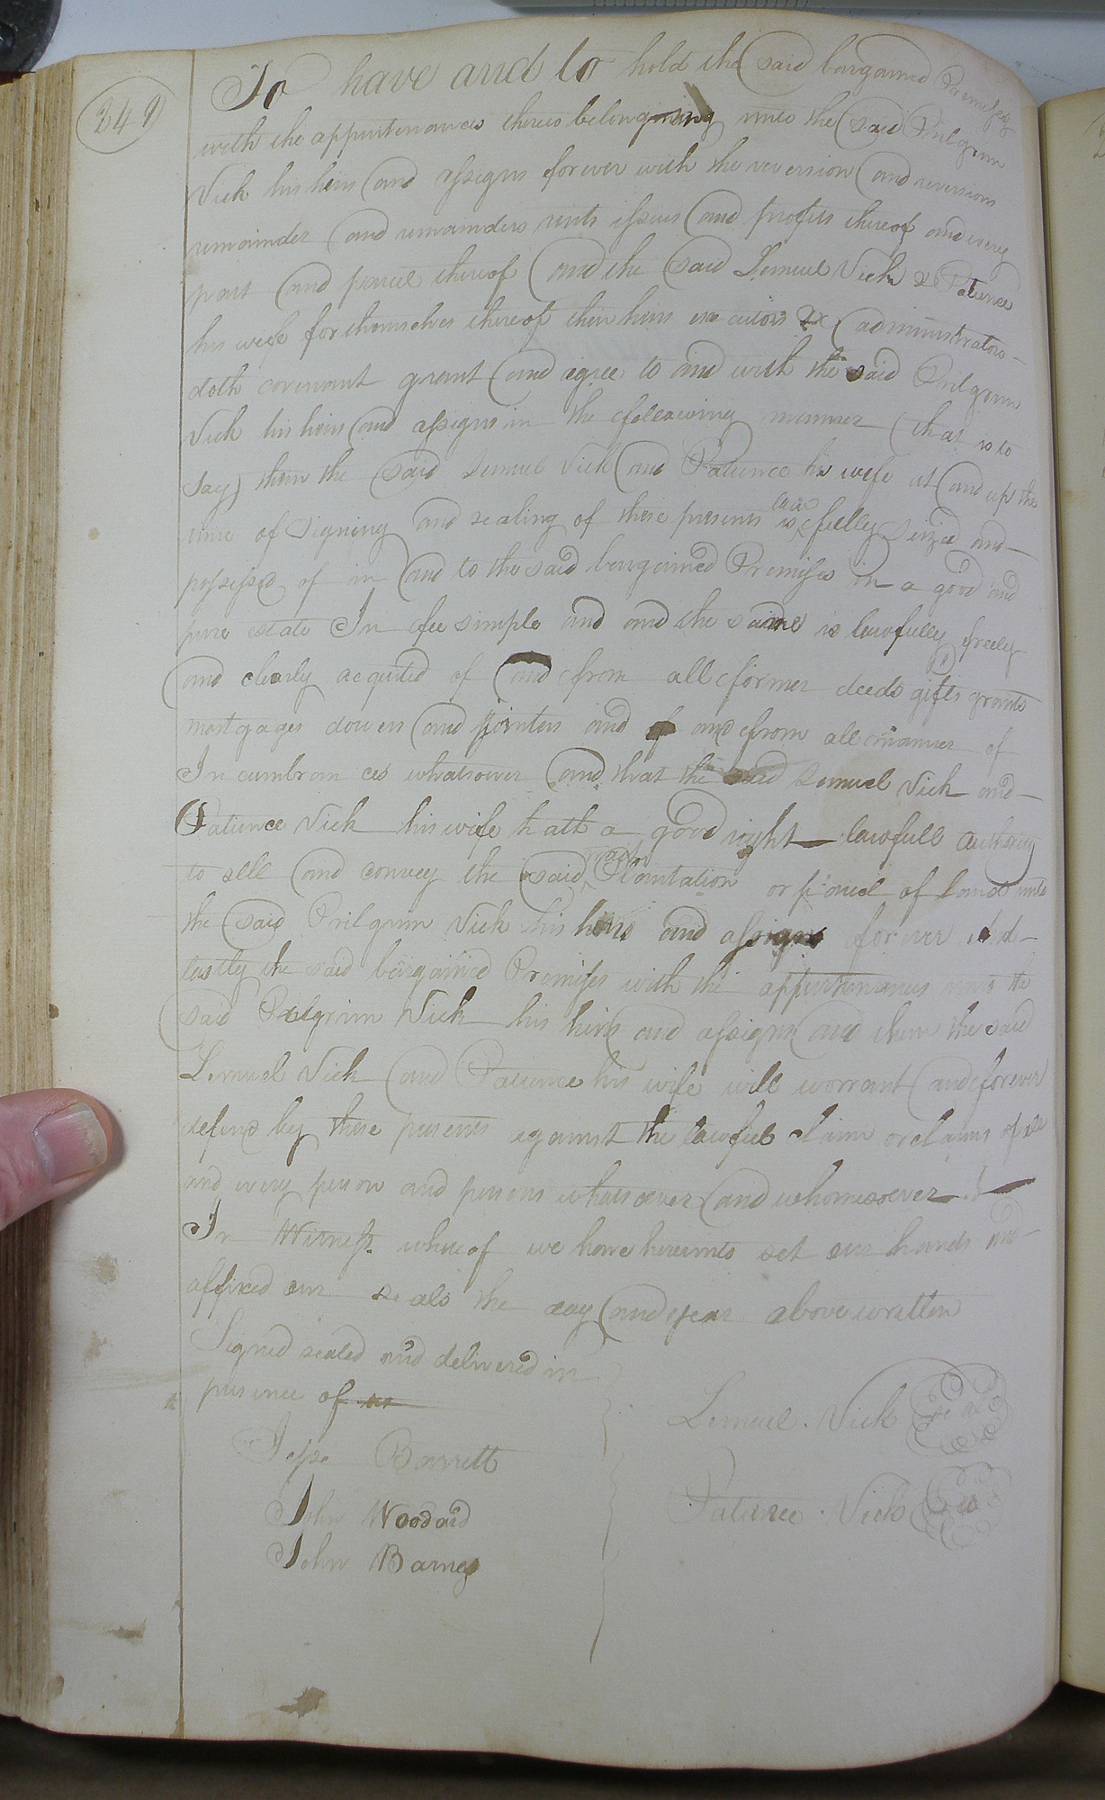 249
To have and to hold the said bargained Premises
with the appurtenances thereto belonging unto the said Pilgrim
Vick his heirs and assigns forever with the reversion and reversions
remainder and remainders rents issues and profits thereof and every
part and parcel thereof and the said Lemuel Vick & Patience
his wife for themselves thereof their heirs executors & administrators
doth covenant grant and agree to and with the said Pilgrim
Vick his heirs and assigns in the following manner (that is to
say) them the said Lemuel Vick and Patience his wife at and up the
time of signing and sealing of these presents is lawfully seized and
possessed of in and to the said bargained Premises in a good and
pure estate In fee simple and and the same is lawfully freely
and clearly acquited of and from all former deeds gifts grants
mortgages dowers and jointers and of and from all manner of
Incumbrances whatsoever and that the said Lemuel Vick and
Patience Vick his wife hath a good right lawfull authority
to sell and convey the said Plantation or parcel of land unto
the said Pilgrim Vick his heirs and assigns forever And
lastly the said bargained Premises with the appurtenances unto the
said Pilgrim Vick his heirs and assigns and them the said
Lemuel Vick and Patience his wife will warrant and forever
defend by these presents against the lawful claim or claims of all
and every person and persons whatsoever and whomesoever
In Witness whereof we have hereunto set our hands and
affixed our seals the day and year above written
Signed sealed and delivered in
presence of us
Lemuel Vick seal
Jesse Barrett
Patience Vick seal
John Woodard
John Barnes